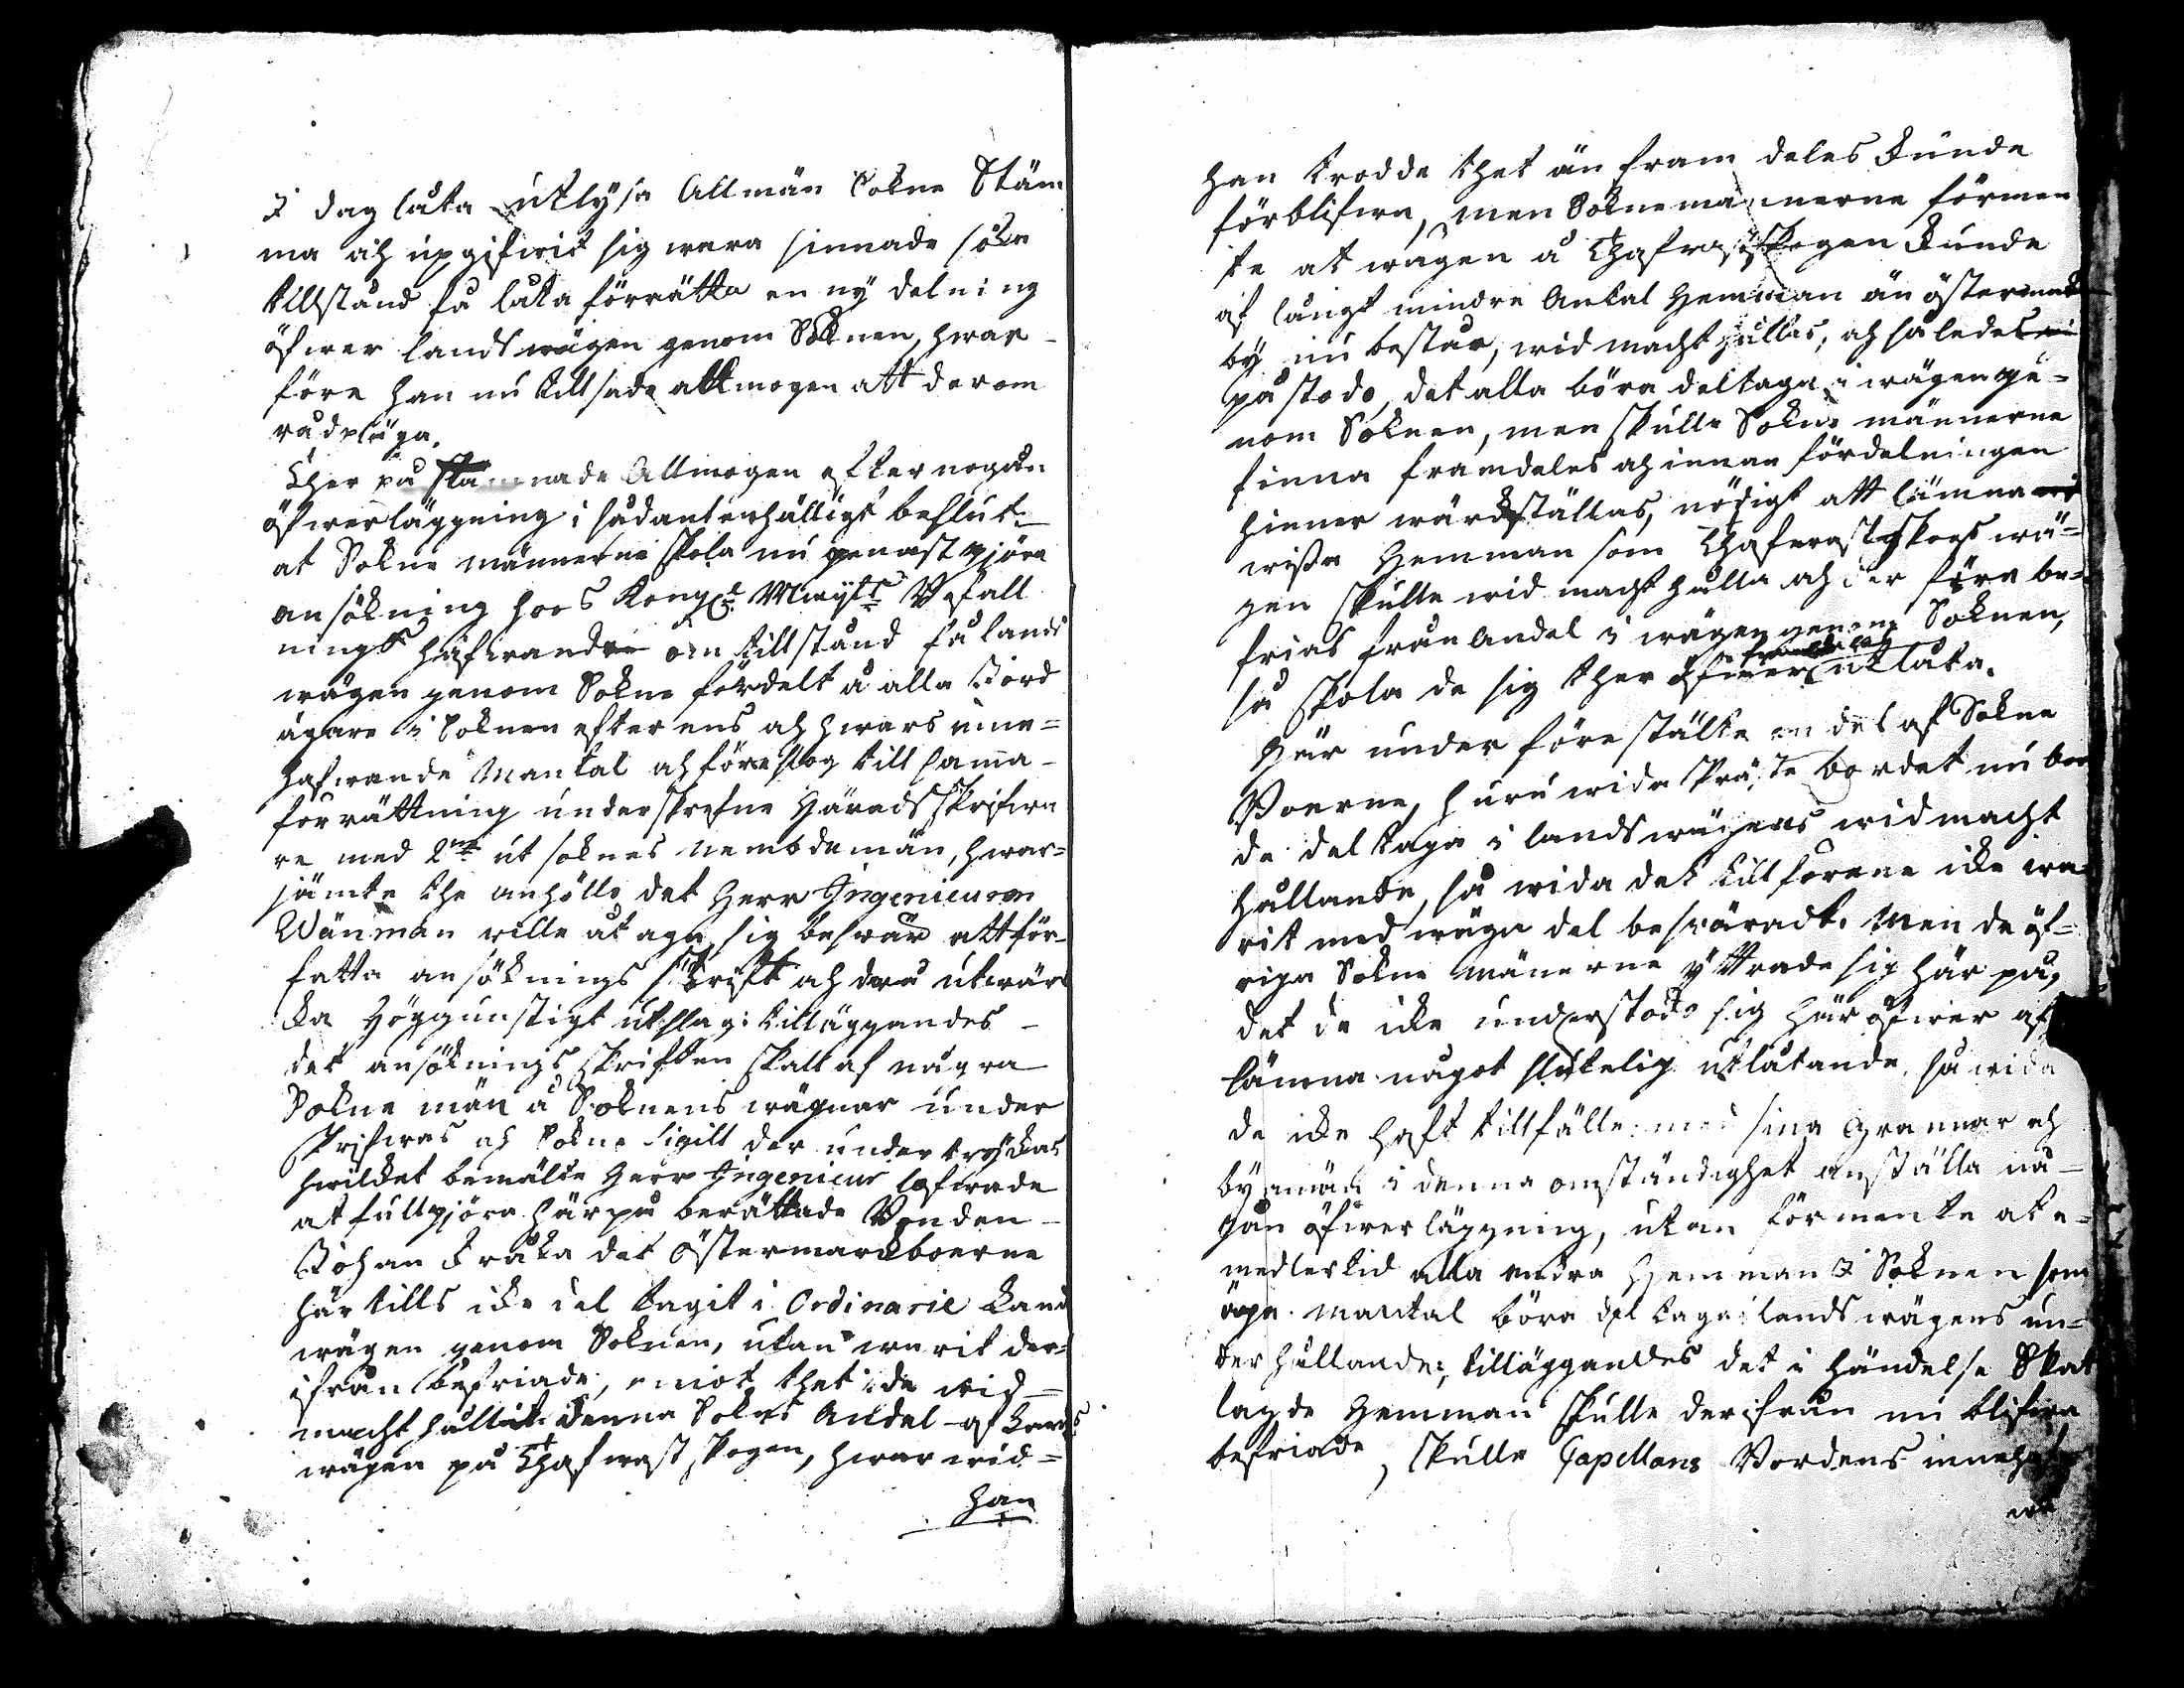 I dag låta utlysa Allmän Sokne Stäm
ma och upgifwit sig wara sinnade söka
tillstånd få låta förrätta en ny delning
öfwer landswägen genom Soknen, hwar-
före han nu tillsade allmogen att derom
rådpläga.
Ther på stannade Allmogen efter nogan
öfwerläggning i sådant enhälligt beslut:
at Sokne männerne skola nu genast gjöra
ansökning hoos Kongl. Maijts Befall
nings hafwande om tillstånd få lands
wägen genom Sokne fördelt å alla Jord
ägare i Soknen efter ens och hwars inne-
hafwande Mantal och föreslog till sama-
förrättning underskrefne Häradsskrifwa
re med 2ne ut soknes nembdemän, hwar-
jämte the anhölle det Herr Ingenieuren
Wänman wille åtaga sig beswär att för-
fatta ansöknings skrift och deru utwär
ka Höggunstigt utslag: tilläggandes -
det ansöknings skriften skall af några
Sokne män å Soknens wägnar under
skrifwas och Sokne Sigill der undertryckas
hwilket bemälte Herr Ingenieur lofwade
at fullgjöra härpå berättade Bonden -
Johan Kråka det Östermarckboerne
härtills icke deltagit i Ordinarie Land
wägen genom Soknen, utan warit der-
ifrån befriade, emot thet de wid-
macht hållit denna Sokns Andel af Lands
wägen på Thafwast skogen, hwar wid-
han
han trodde thet än fram deles kunde
förblifwa, men Soknemännerne förmen
te at wägen å Thafwastskogen kunde
af långt mindre Antal Hemman än östermark
by nu bestar, wid macht hållas, och således
påstodo, det alla böra deltaga i wägen ge-
nom Soknen, men skulle Sokne männerne
finna framdeles och innan fördelningen
hinner wärckställas, nödigt att lämna
wissa Hemman som Thafwast skogs wä-
gen skulle wid macht hålla och der före be-
frias från Andel i wägen genom Soknen,
framdeles
så skola de sig ther öfwer utlåta.
Här under förestälte en del af Sokne
Boerne, huru wida Präste bordet nu bör
de deltaga i landswägens widmacht
hållande, så wida det tillförene icke wa
rit med wäga del beswäradt. Men de öf-
riga Sokne Mänerne yttrade sig här på,
det de icke understodo sig här öfwer af
lämna något slutelig utlåtande, så wida
de icke haft tillfälle med sina Grannar och
byamän i denna omständighet anställa nå-
gon öfwerläggning, utan förmente at e-
medlertid alla andra Hemman I Soknen som
äga Mantal böra deltaga i landswägens un-
derhållande: tilläggandes det i händelse Skat
lagde Hemman skulle derifrån nu blifwa
befriade, skulle Capellans Bordens innehaf
wa